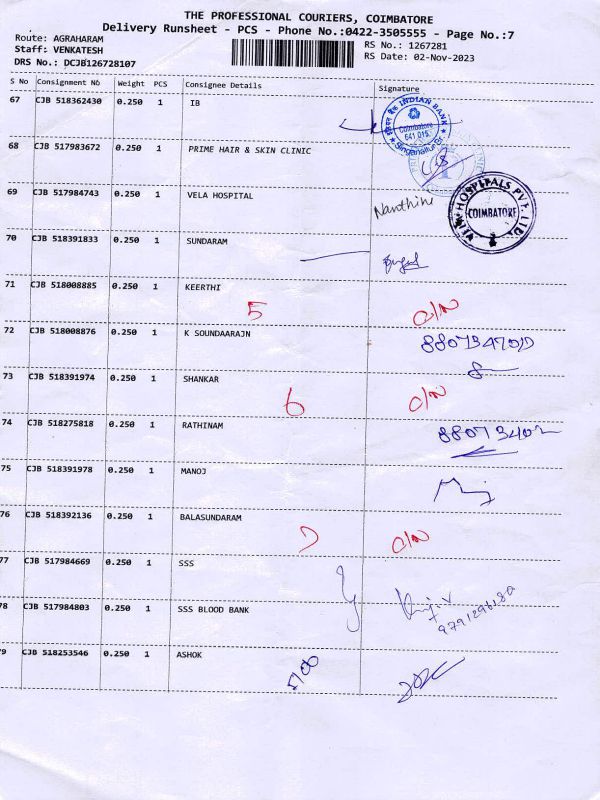 THE PROFESSIONAL COURIERS, COIMBATORE
Delivery Runsheet - PCS - Phone No.:0422-3505555 - Page No.:7
Route: AGRAHARAM
Staff: VENKATESH
DRS No.: DCJB126728107
RS No.: 1267281
RS Date: 02-Nov-2023
S No Consignment NO Weight PCS Consignee Details Signature
67 CJB 518362430 0.250 1 IB
INDIAN BANK
Coimbatore
641 015
Singanallur Br
68 CJB 517983672 0.250 1 PRIME HAIR & SKIN CLINIC
69 CJB 517984743 0.250 1 VELA HOSPITAL Nanthini
HOSPITALS PVT. LTD.
COIMBATORE
70 CJB 518391833 0.250 1 SUNDARAM
71 CJB 518008885 0.250 1 KEERTHI 5 C/N
72 CJB 518008876 0.250 1 K SOUNDAARAJN
73 CJB 518391974 0.250 1 SHANKAR 6 C/N
74 CJB 518275818 0.250 1 RATHINAM
75 CJB 518391978 0.250 1 MANOJ
76 CJB 518392136 0.250 1 BALASUNDARAM 7 C/N
77 CJB 517984669 0.250 1 SSS
78 CJB 517984803 0.250 1 SSS BLOOD BANK
79 CJB 518253546 0.250 1 ASHOK